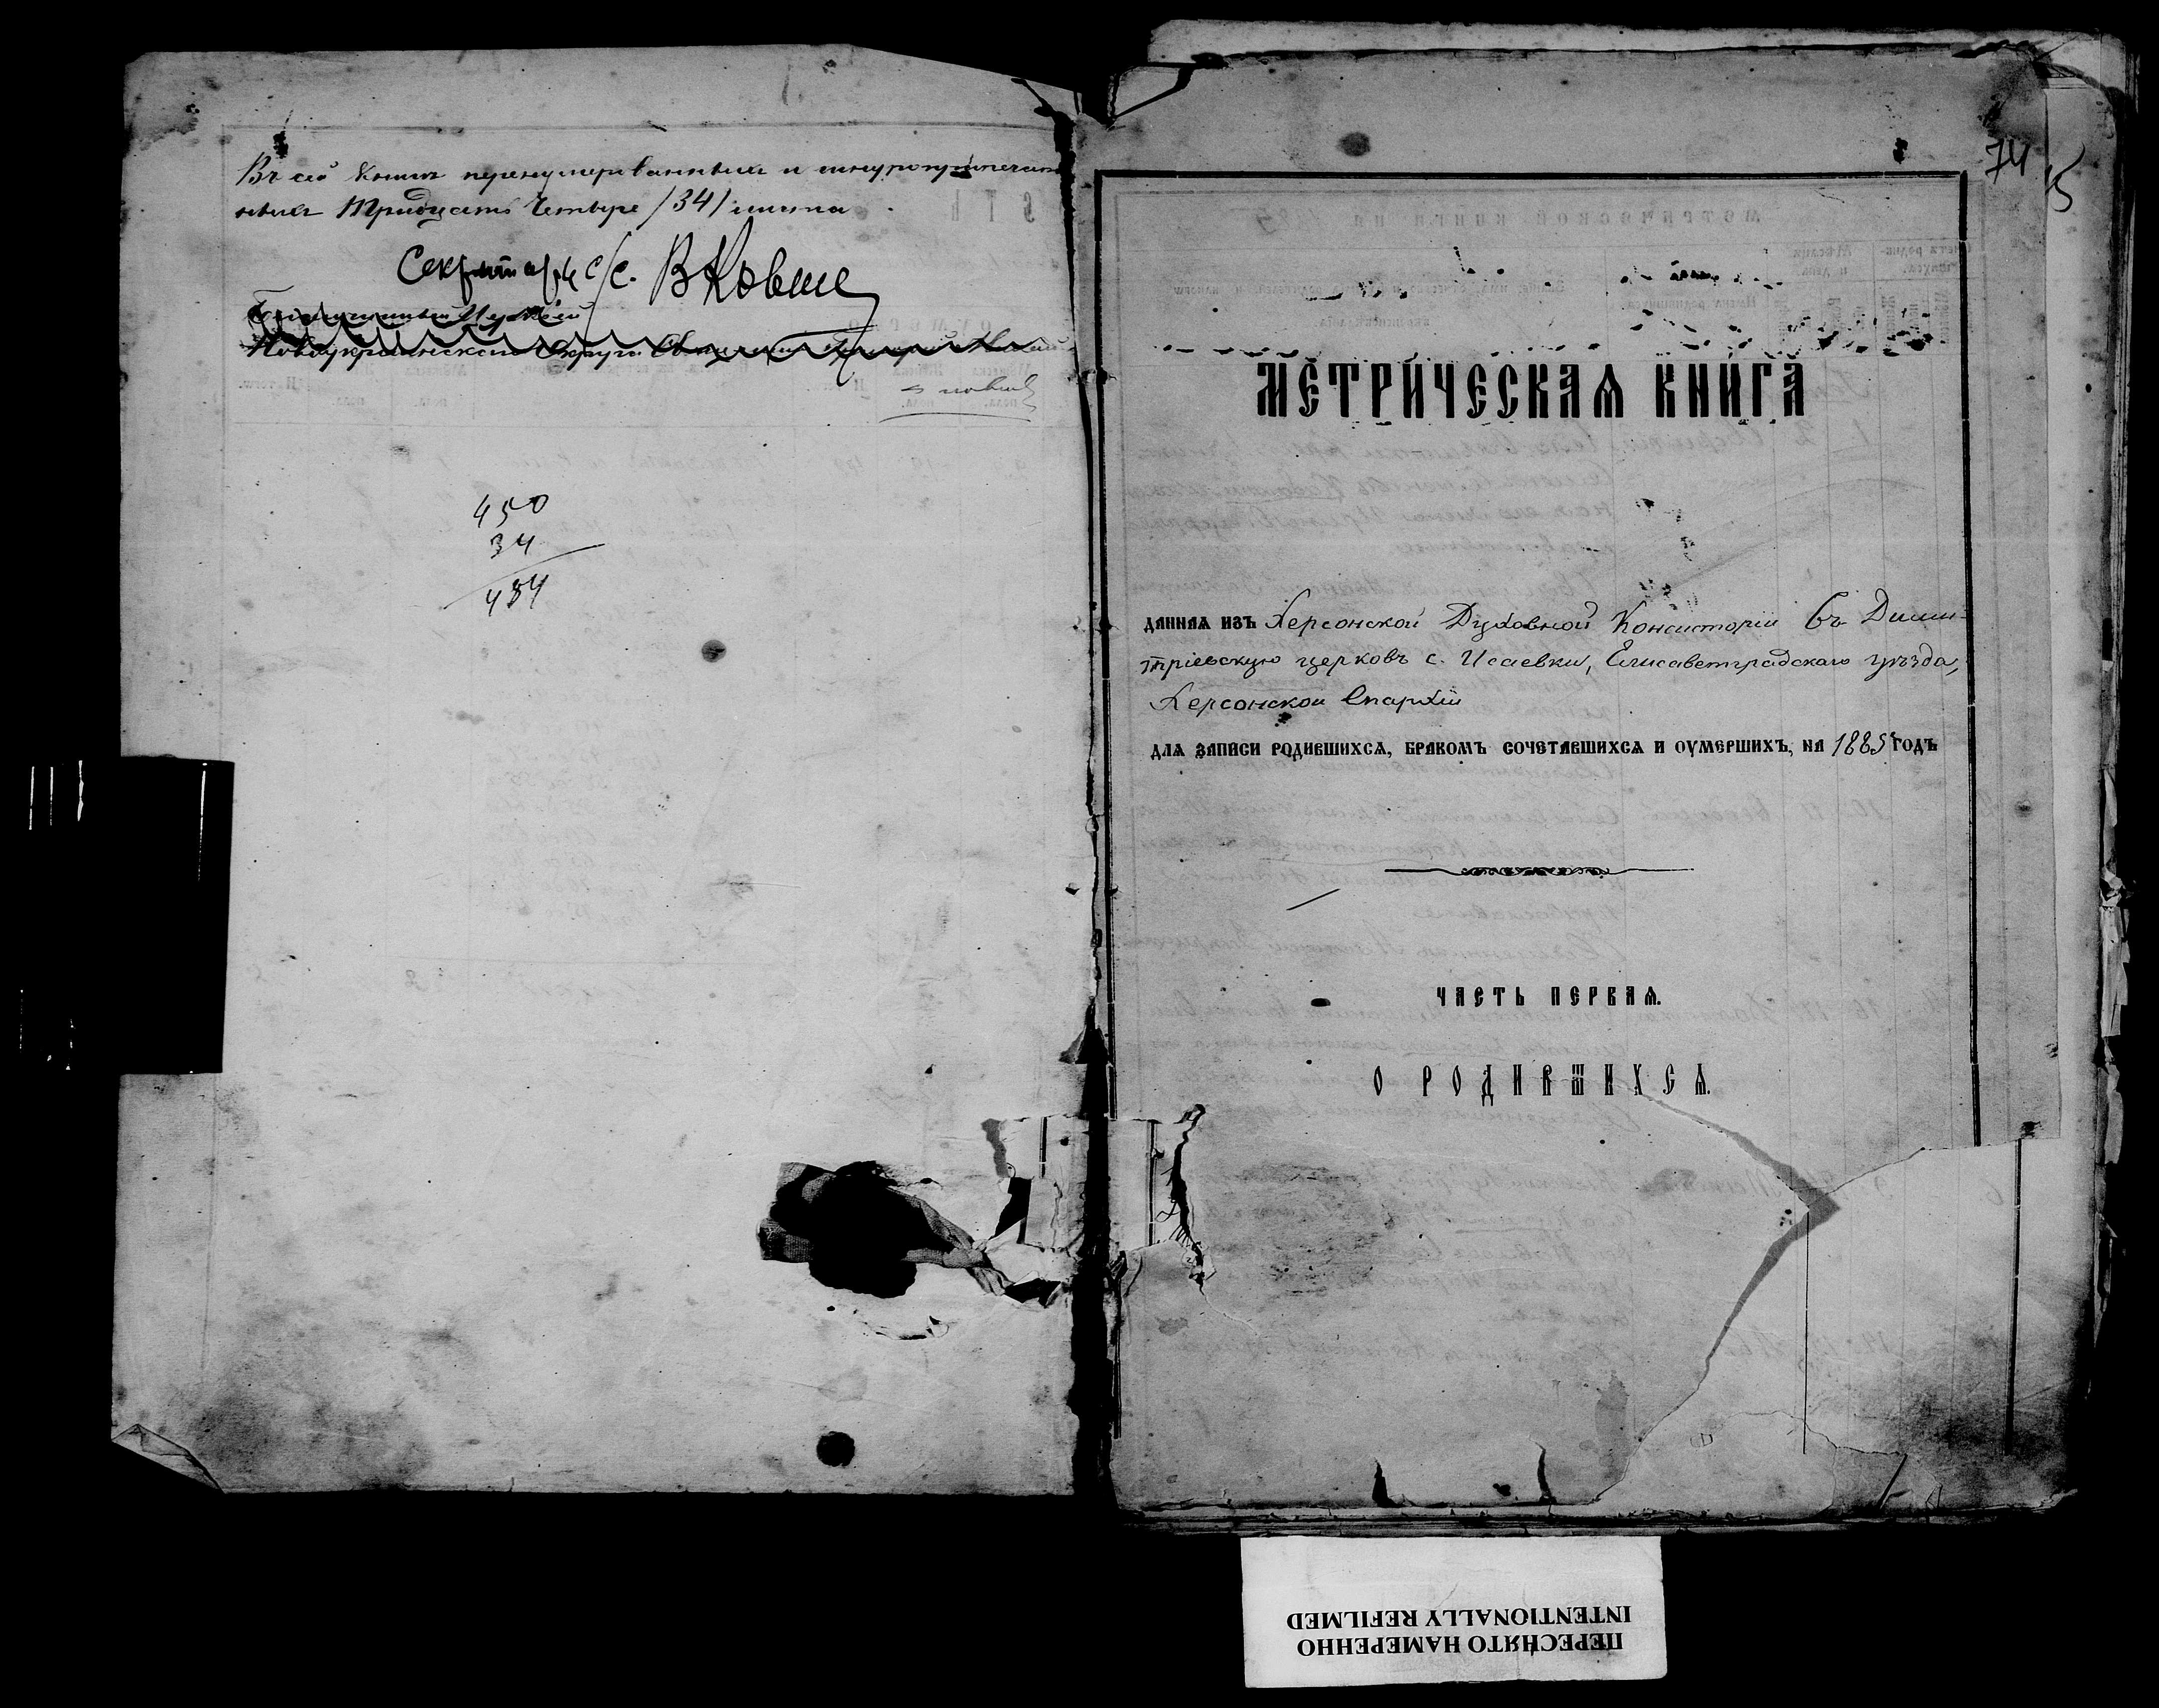 Въ сей книгѣ перенумерованныхъ и шнуроприпечатан
ныхъ Тридцать Четыре /34/ листа
Секретарь с/с. ВКовше
Благочинный Церквей
Новоукраинскаго Округа
450
34
484
74
МЕТРИЧЕСКАѦ КНИГА
даннаѧ изъ Херсонской Духовной Консисторіи въ Дими-
тріевскую церковь с. Исаевки, Елисаветградскаго уѣзда,
Херсонской Епархіи
длѧ записи родившихсѧ, бракомъ сочетавшихсѧ и оумершихъ, на 1885 годъ
ЧАСТЬ ПЕРВАѦ.
О РОДИВШИХСѦ.
ПЕРЕСНЯТО НАМЕРЕННО
INTENTIONALLY REFILMED